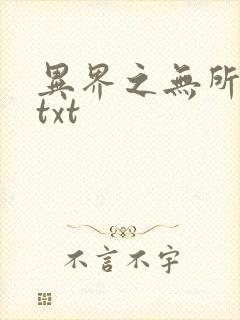 異界之無所
txt
不言不字